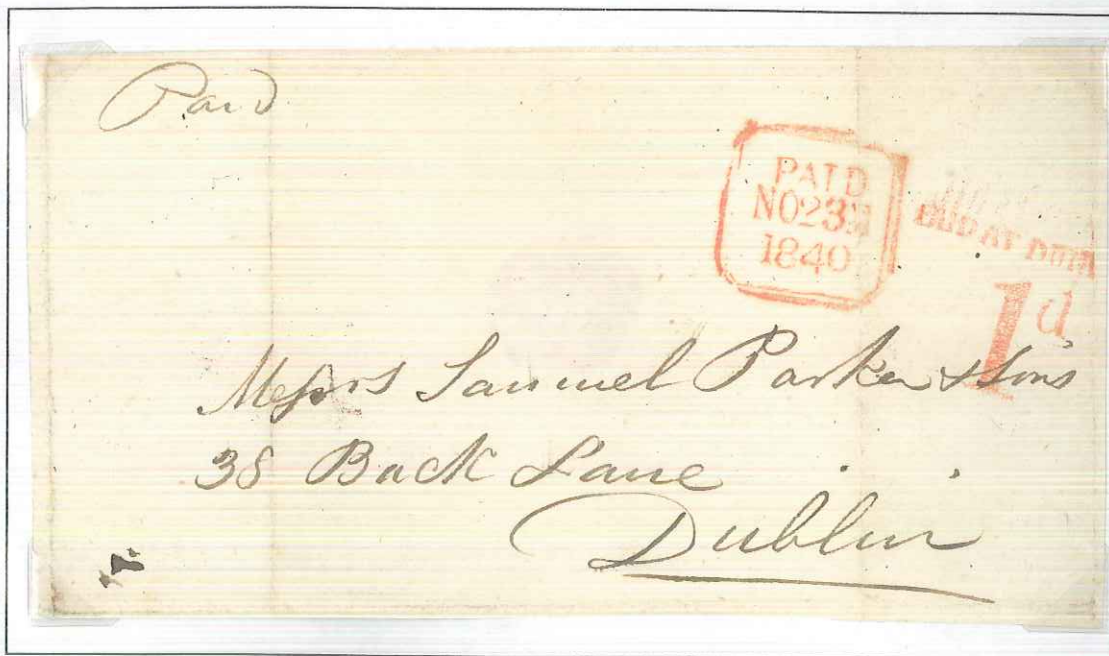 Paid
PAID
NO 23
1840
AT
1d
Messrs Samuel Parker & Sons
38 Back Lane
Dublin